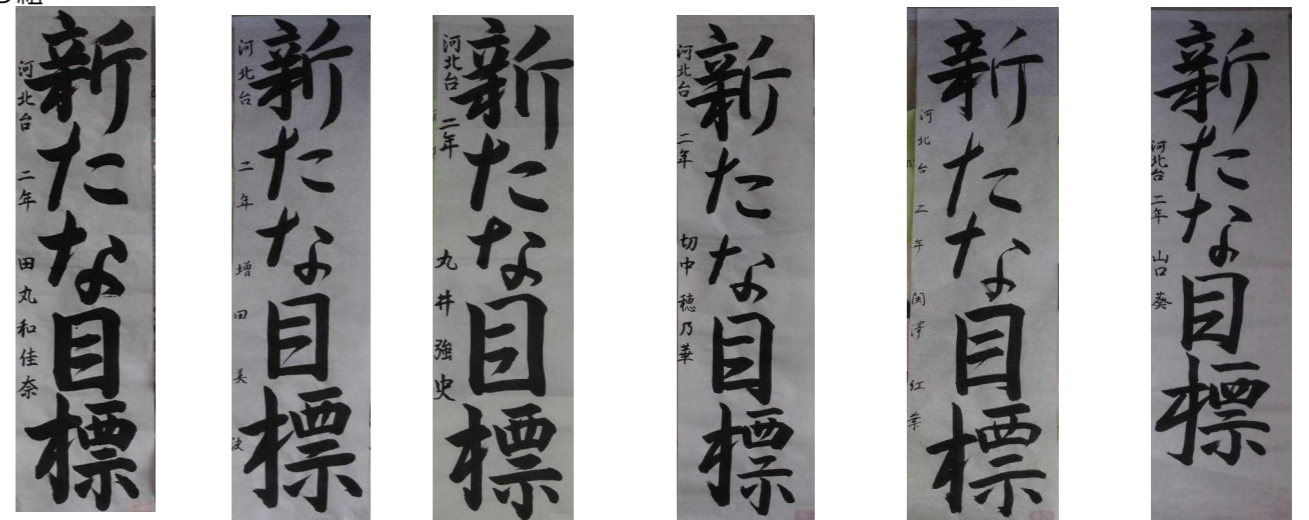 組
新たな目標
河北台 二年 田丸 和佳奈
新たな目標
河北台 二年 増田 美波
新たな目標
河北台 二年 丸井 強史
新たな目標
河北台 二年 切中 穂乃華
新たな目標
河北台 二年 関澤 紅葉
新たな目標
河北台 二年 山口 葵